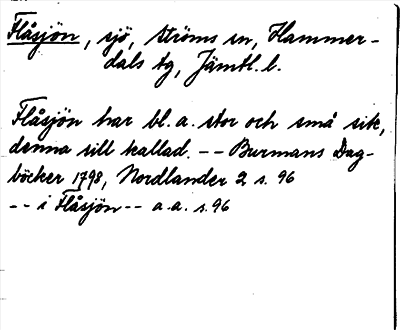 Flåsjön, sjö, Ströms sn, Hammer-
dals tg, Jämtl. l.
Flåsjön har bl. a. stor och små sik,
denna sill kallad. -- Burmans Dag-
böcker 1798, Nordlander 2 s. 96
-- i Flåsjön -- a. a. s. 96